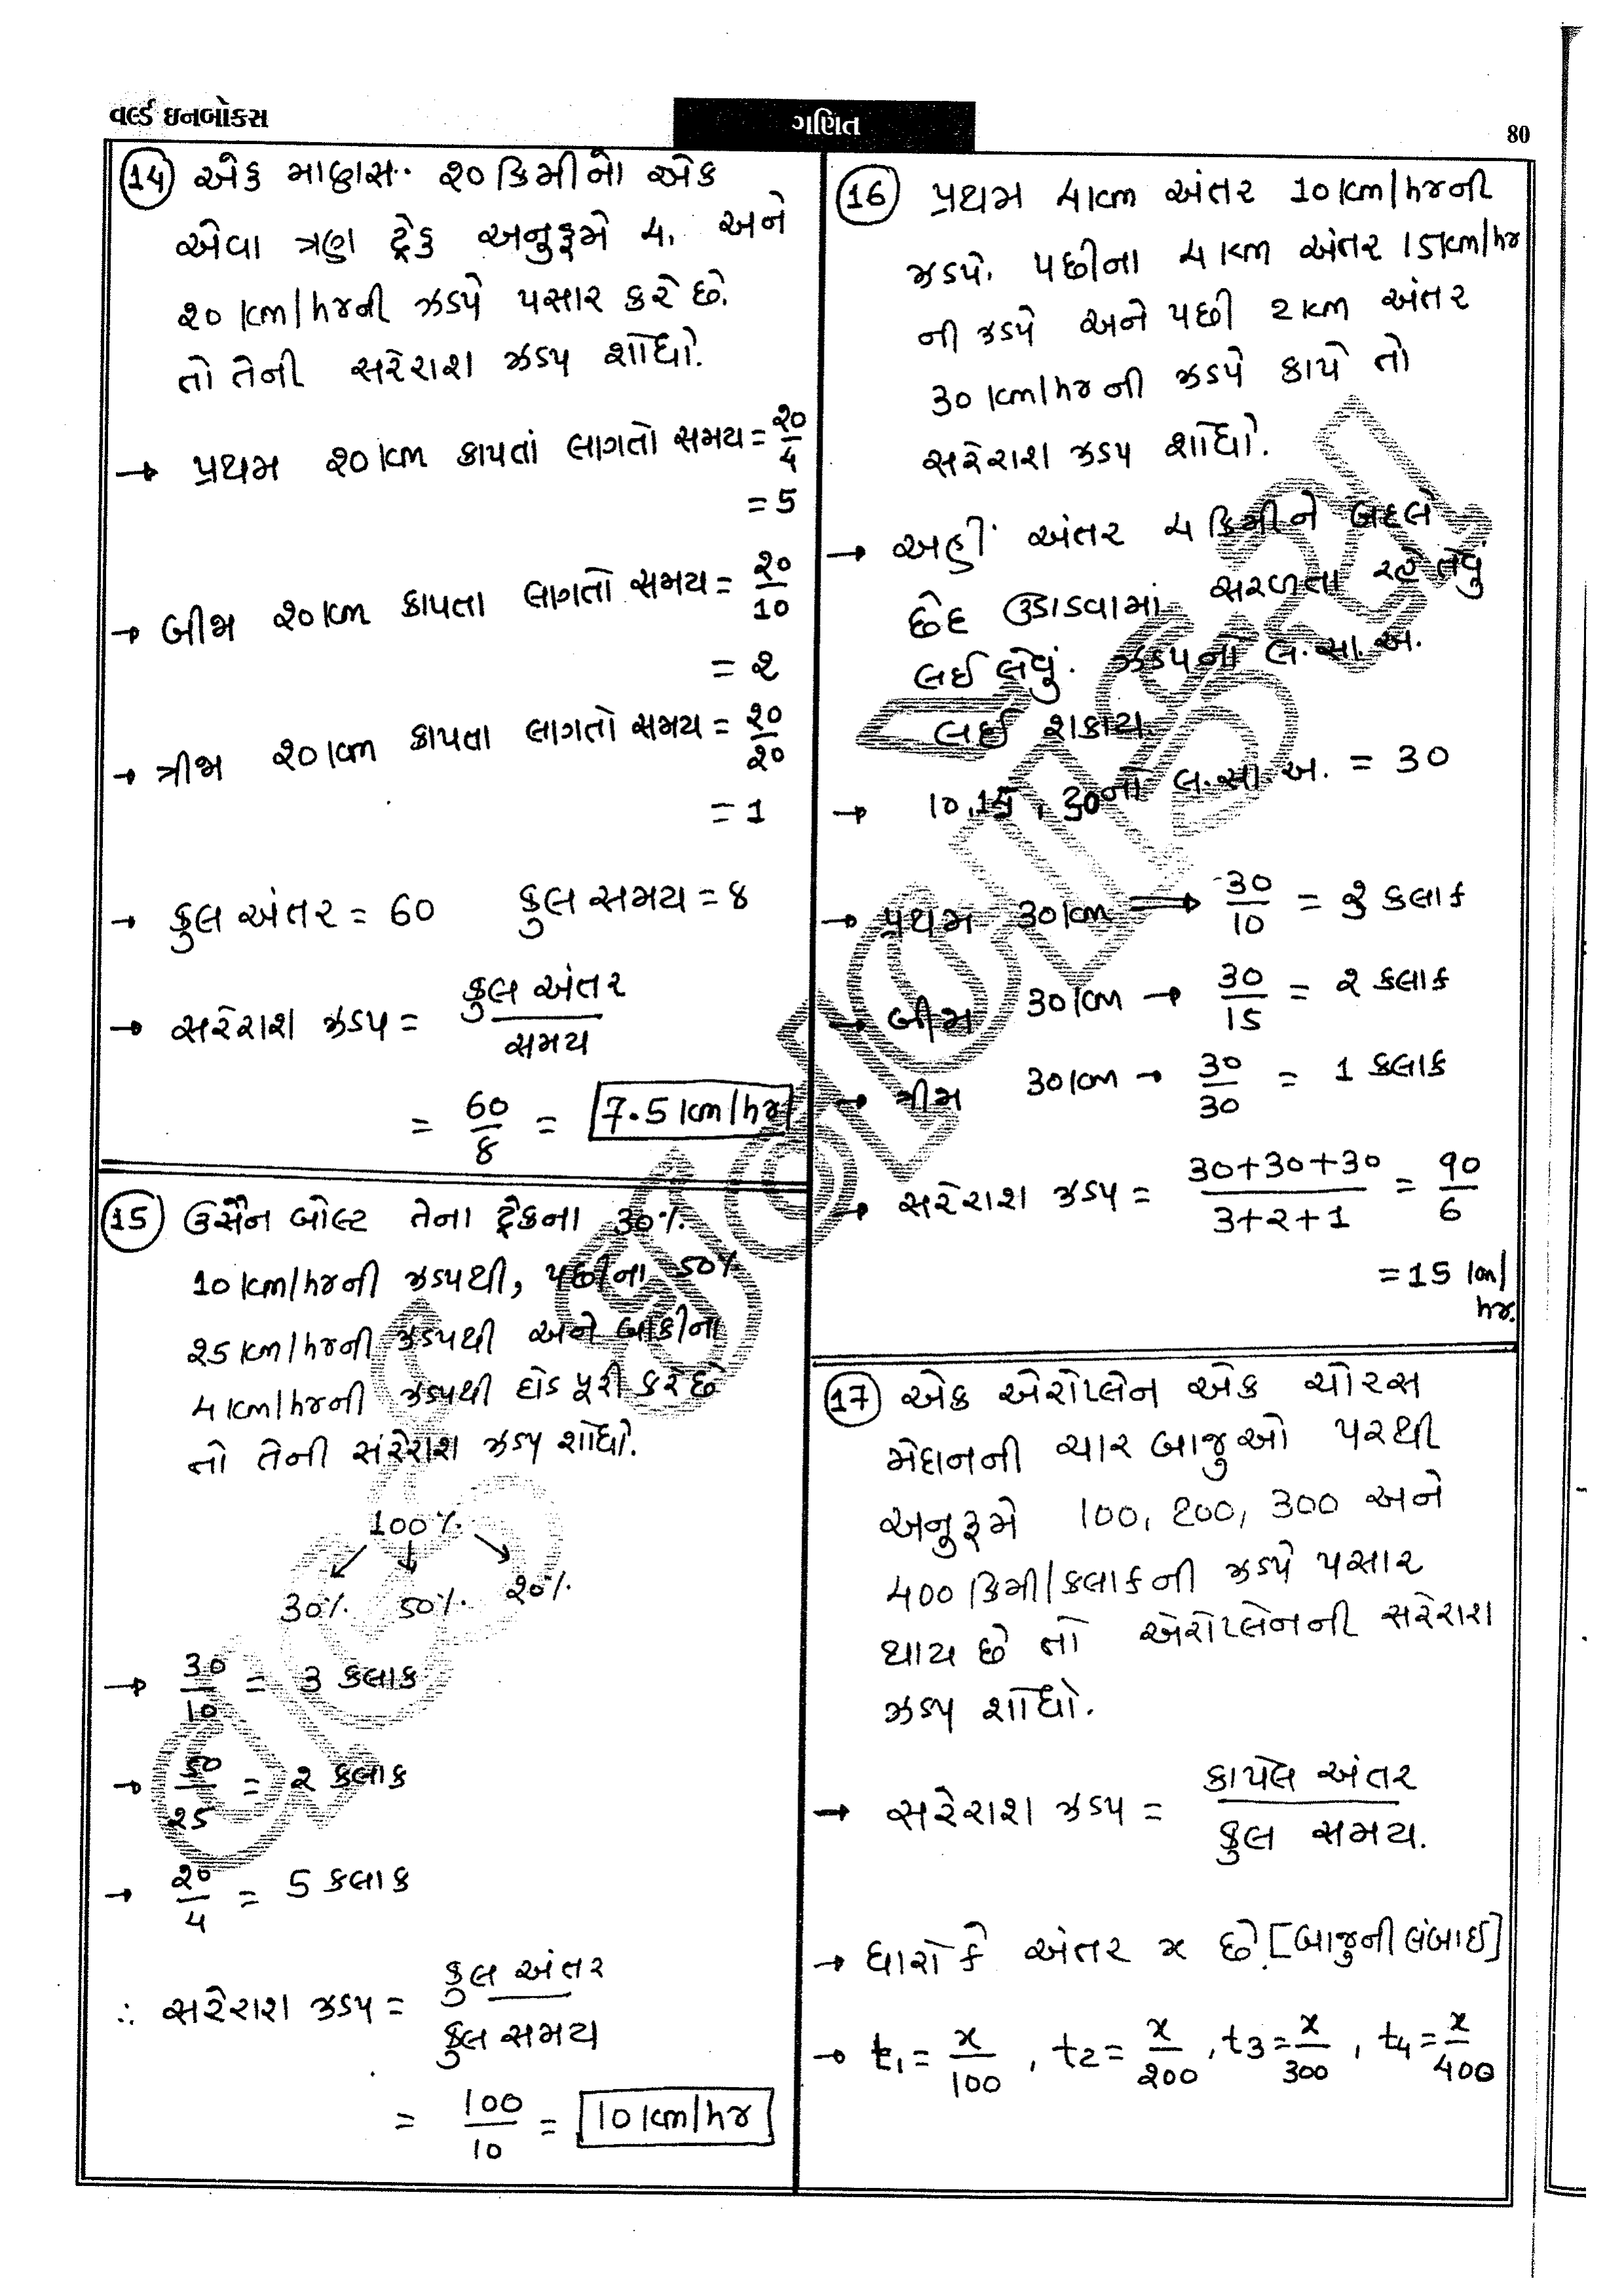 વર્લ્ડ ઇનબોક્સ
ગણિત
80
(14) એક માણસ ૨૦ કિમીનો એક
એવા ત્રણ ટ્રેક અનુક્રમે 4, અને
૨૦ km/hrની ઝડપે પસાર કરે છે.
તો તેની સરેરાશ ઝડપ શોધો.
→ પ્રથમ ૨૦ km કાપતાં લાગતો સમય = ૨૦/4
= 5
→ બીજા ૨૦ km કાપતા લાગતો સમય = ૨૦/10
= ૨
→ ત્રીજા ૨૦ km કાપતા લાગતો સમય = ૨૦/૨૦
= 1
→ કુલ અંતર = 60 કુલ સમય = 8
→ સરેરાશ ઝડપ = કુલ અંતર/સમય
= 60/8 = 7.5 km/hr
(15) ઉસૈન બોલ્ટ તેના ટ્રેકના 30%
10 km/hrની ઝડપથી, પછીના 50%
૨5 km/hrની ઝડપથી અને બાકીના
4 km/hrની ઝડપથી દોડ પૂરી કરે છે
તો તેની સરેરાશ ઝડપ શોધો.
100%
30% 50% ૨૦%
→ 30/10 = 3 કલાક
→ 50/૨5 = ૨ કલાક
→ ૨૦/4 = 5 કલાક
∴ સરેરાશ ઝડપ = કુલ અંતર/કુલ સમય
= 100/10 = 10 km/hr
(16) પ્રથમ 4 km અંતર 10 km/hrની
ઝડપે, પછીના 4 km અંતર 15 km/hr
ની ઝડપે અને પછી 2 km અંતર
30 km/hrની ઝડપે કાપે તો
સરેરાશ ઝડપ શોધો.
→ અહીં અંતર 4 કિમીને બદલે
છેદ ઉડાડવામાં સરળતા રહે તેવું
લઈ લેવું. ઝડપનો લ.સા.અ.
લઈ શકાય
→ 10, 15, 30નો લ.સા.અ. = 30
→ પ્રથમ 30 km ⟹ 30/10 = 3 કલાક
→ બીજા 30 km → 30/15 = ૨ કલાક
→ ત્રીજા 30 km → 30/30 = 1 કલાક
→ સરેરાશ ઝડપ = 30+30+30/3+૨+1 = 90/6
= 15 km/
hr.
(17) એક એરોપ્લેન એક ચોરસ
મેદાનની ચાર બાજુઓ પરથી
અનુક્રમે 100, 200, 300 અને
400 કિમી/કલાકની ઝડપે પસાર
થાય છે તો એરોપ્લેનની સરેરાશ
ઝડપ શોધો.
→ સરેરાશ ઝડપ = કાપેલ અંતર/કુલ સમય.
→ ધારો કે અંતર x છે. [બાજુની લંબાઈ]
→ t1 = x/100, t2 = x/૨00, t3 = x/300, t4 = x/400